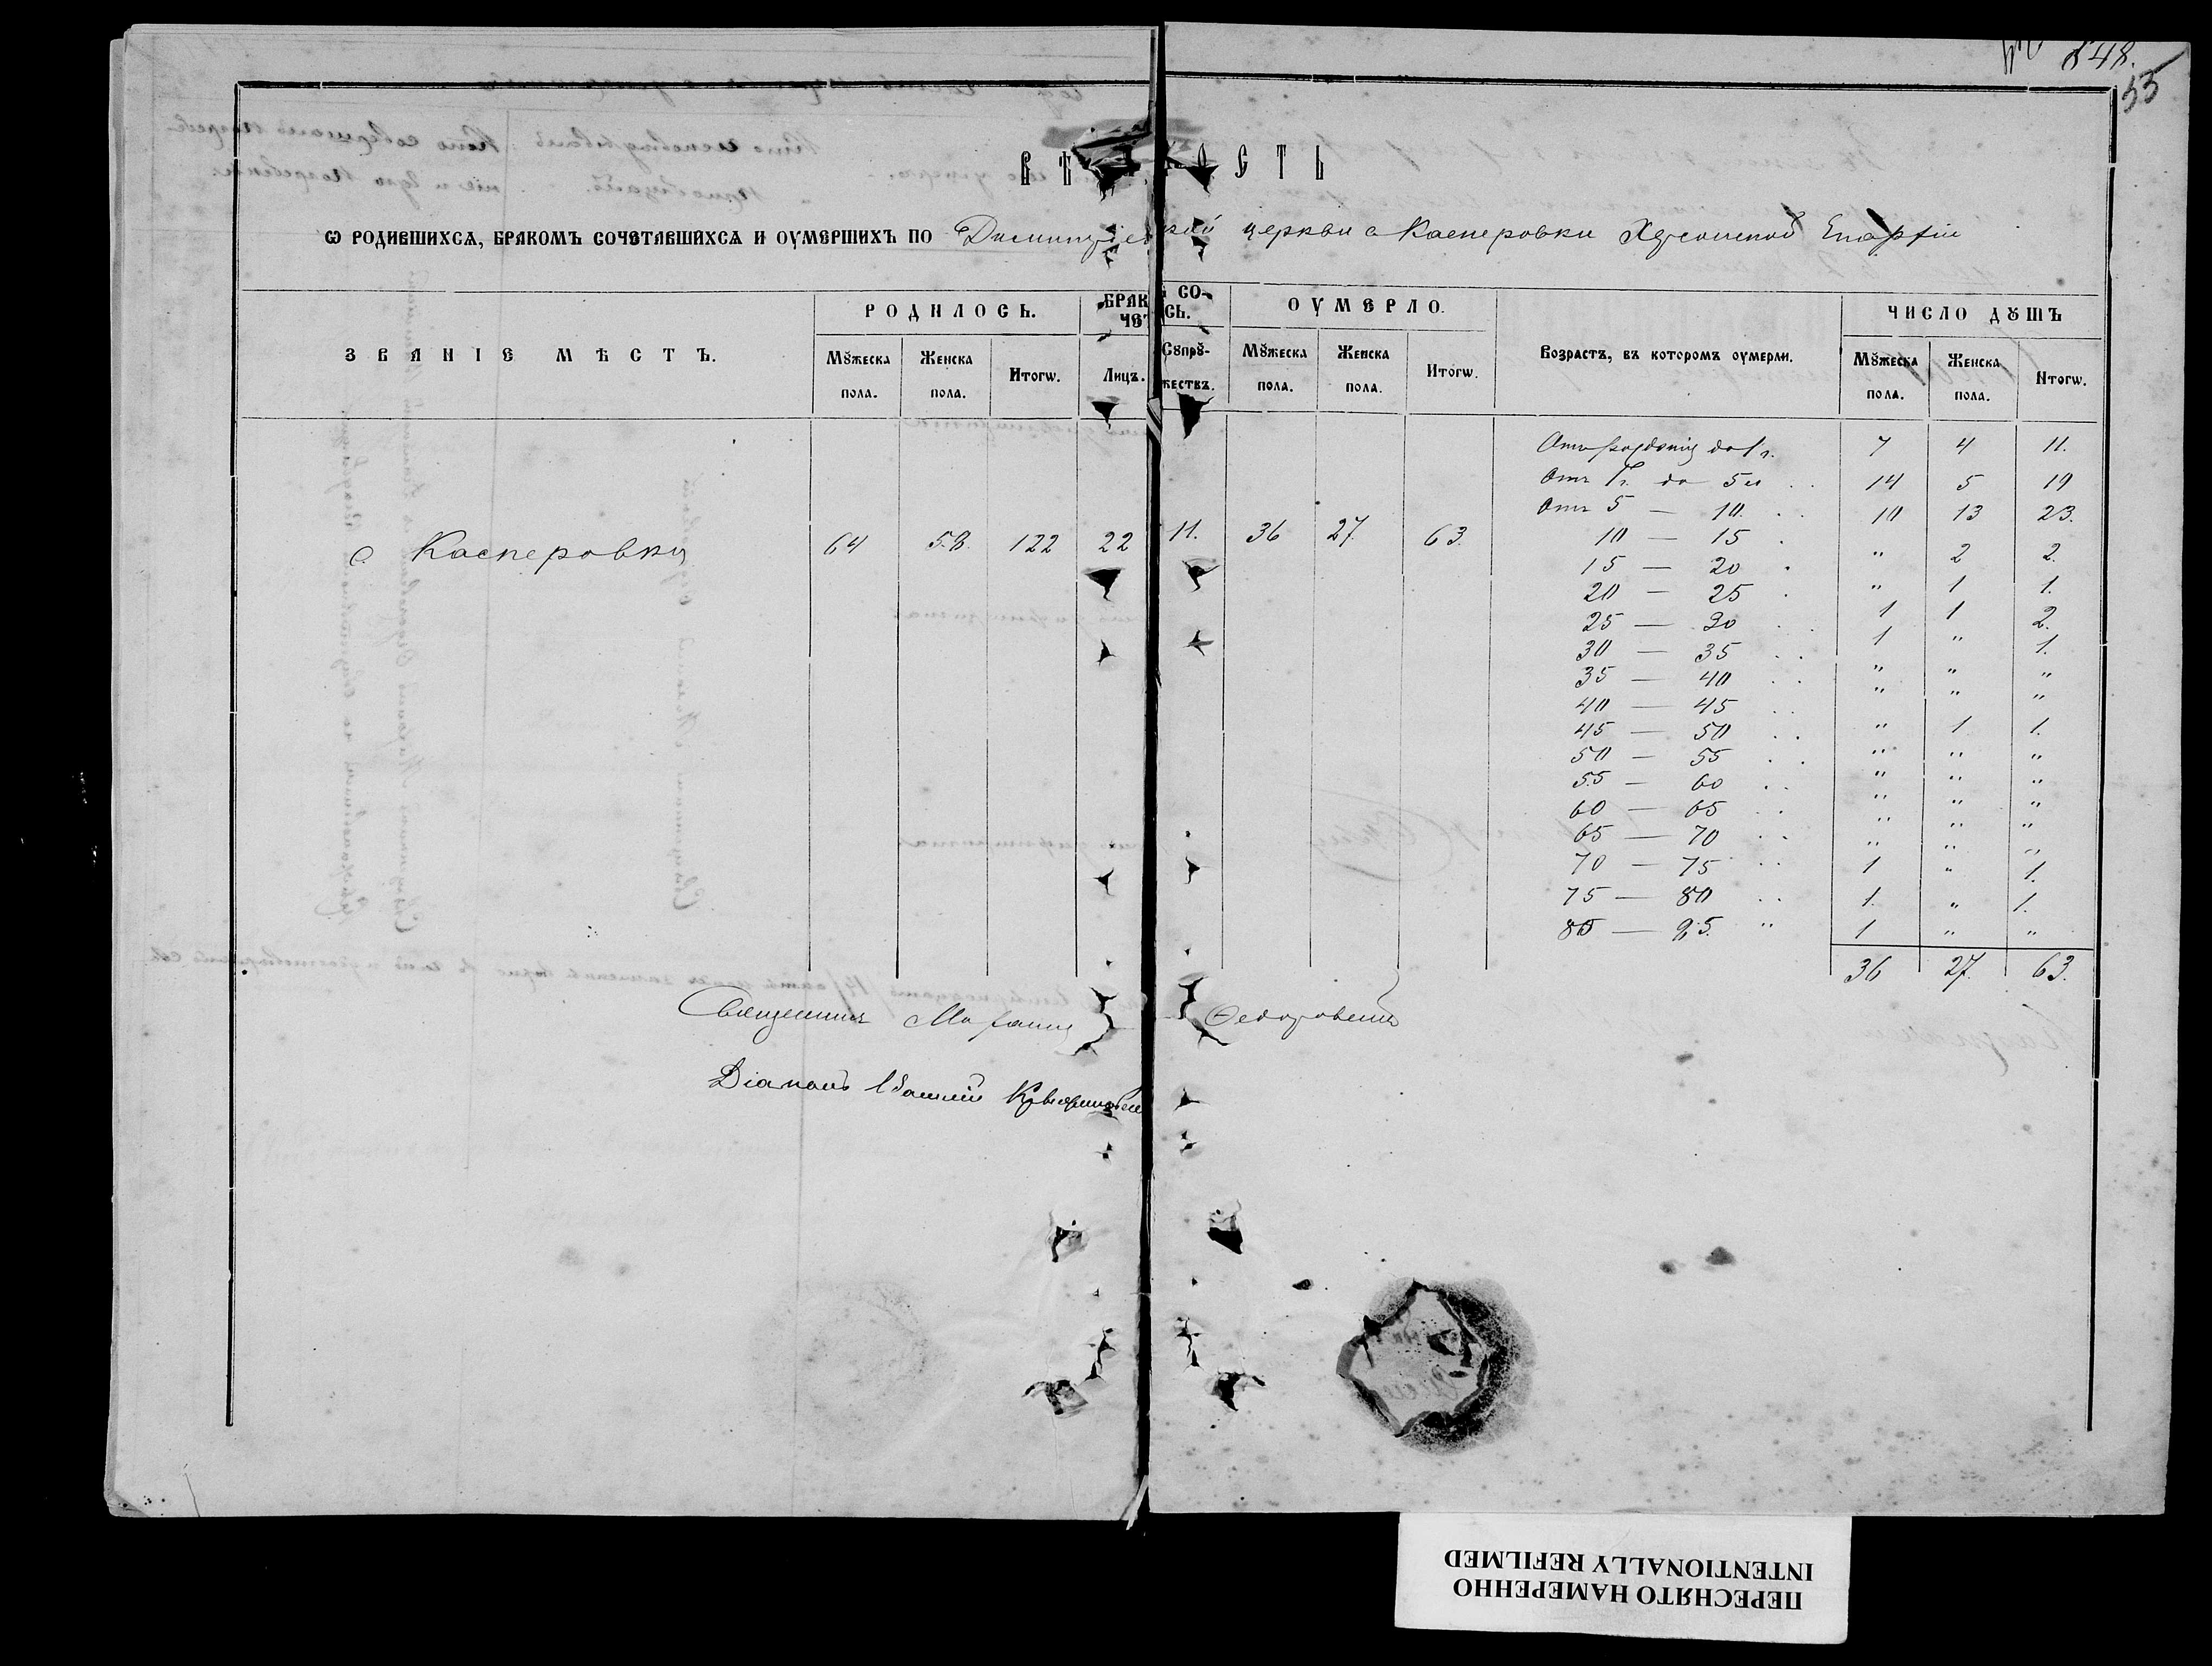 848.
53
ВѢ ОСТЬ
Ѡ РОДИВШИХСѦ, БРАКОМЪ СОЧЕТАВШИХСѦ И ОУМЕРШИХЪ ПО Димитріев ской церкви с Касперовки Херсонской Епархіи
ЗВАНІЕ МѢСТЪ. РОДИЛОСЬ. БРАК СО- ЧЕТ СЬ. ОУМЕРЛО. Возрастъ, въ которомъ оумерли. ЧИСЛО ДꙊШЪ
Мꙋжеска пола. Женска пола. Итогѡ. Лицъ. Сꙋпрꙋ- жествъ. Мꙋжеска пола. Женска пола. Итогѡ. Мꙋжеска пола. Женска пола. Итогѡ.
с Касперовка 64 58. 122 22 11. 36 27. 63.
Отъ рожденія до 1 г. 7 4 11.
Отъ 1 г. до 5 и .. 14 5 19
Отъ 5 — 10. .. 10 13 23.
10 — 15 . " 2 2.
15 — 20 . " 1 1.
20 — 25 . 1 1 2.
25 — 30 .. 1 " 1.
30 — 35 .. " " "
35 — 40 .. " " "
40 — 45 .. " 1 1.
45 — 50 .. " " "
50 — 55 .. " " "
55 — 60 .. " " "
60 — 65 .. " " "
65 — 70 .. " " "
70 — 75 .. 1 " 1.
75 — 80 .. 1. " 1.
85 — 95. " 1 " "
36 27. 63.
Священникъ Федоровичъ
Діаконъ
ПЕРЕСНЯТО НАМЕРЕННО
INTENTIONALLY REFILMED